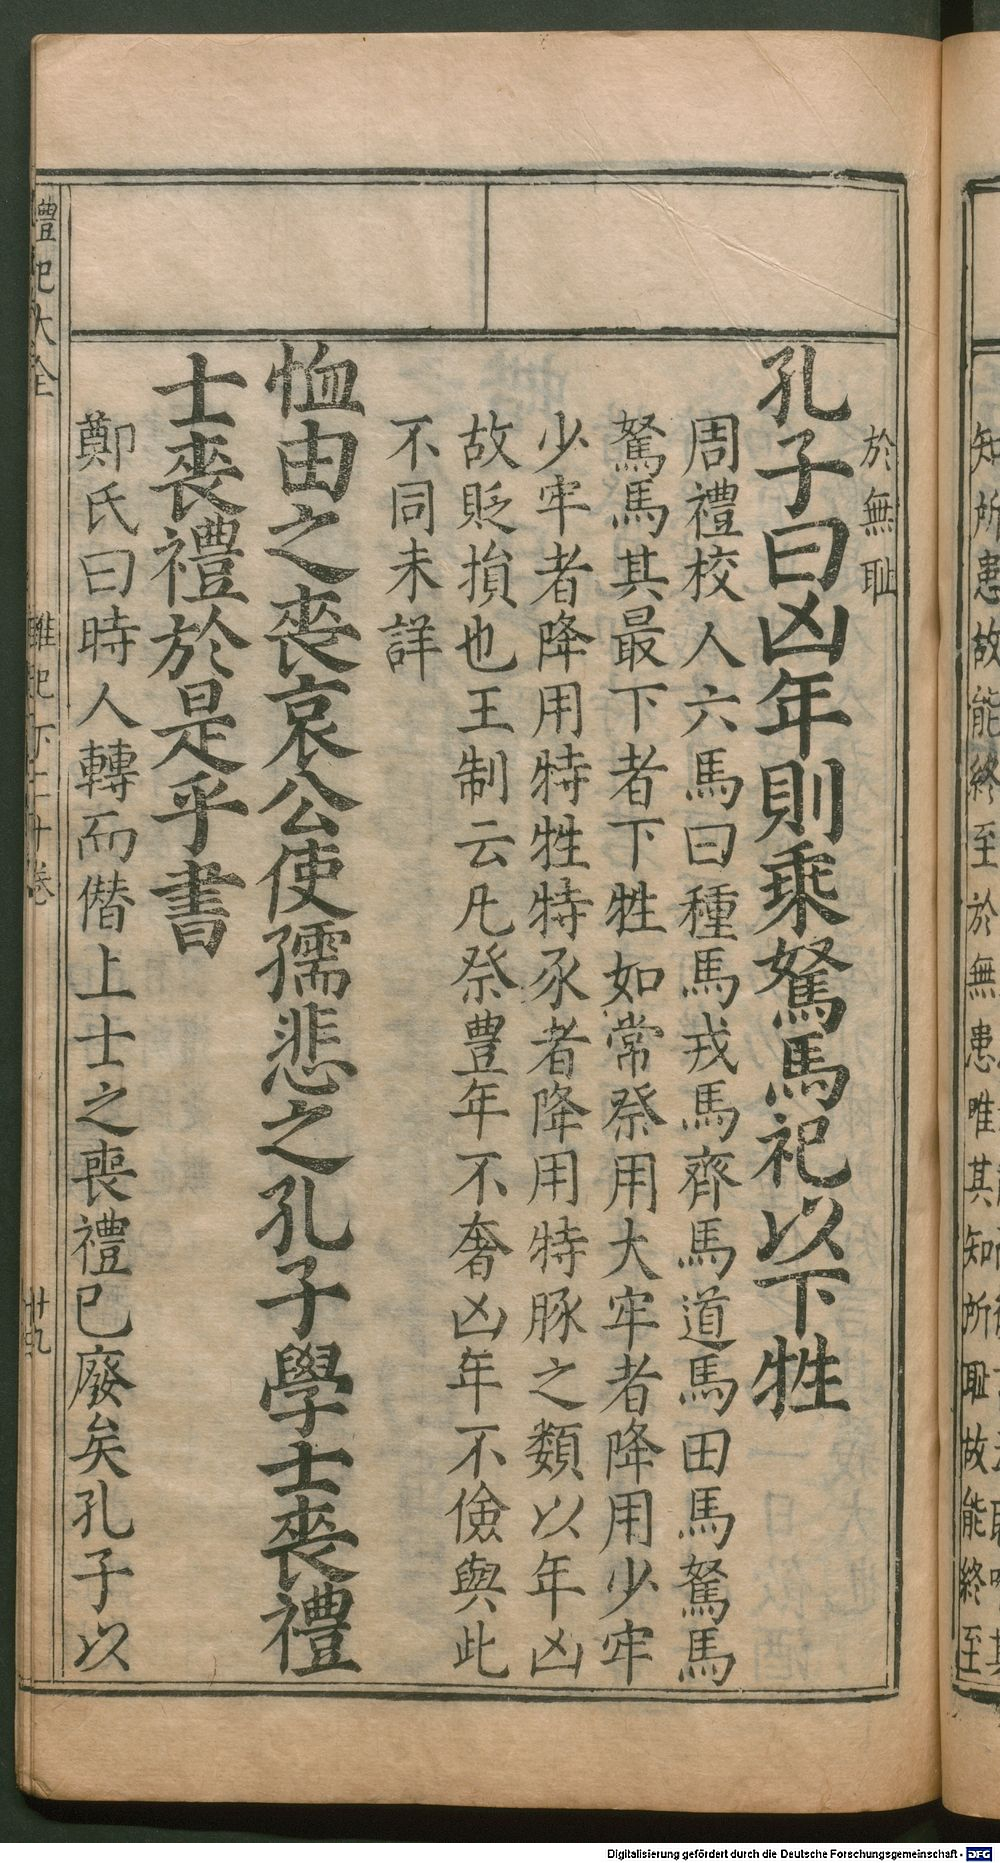 知所患故能終至於無患唯其知所恥故能終至
於無耻
孔子曰凶年則乘駑馬祀以下牲
周禮校人六馬曰種馬戎馬齊馬道馬田馬駑馬
駑馬其最下者下牲如常祭用大牢者降用少牢
少牢者降用特牲特豕者降用特豚之類以年凶
故貶損也王制云凡祭豊年不奢凶年不儉與此
不同未詳
恤由之喪哀公使孺悲之孔子學士喪禮
士喪禮於是乎書
鄭氏曰時人轉而僭上士之喪禮已廢矣孔子以
禮記大全
雜記下二十卷
廿九
Digitalisierung gefördert durch die Deutsche Forschungsgemeinschaft - DFG